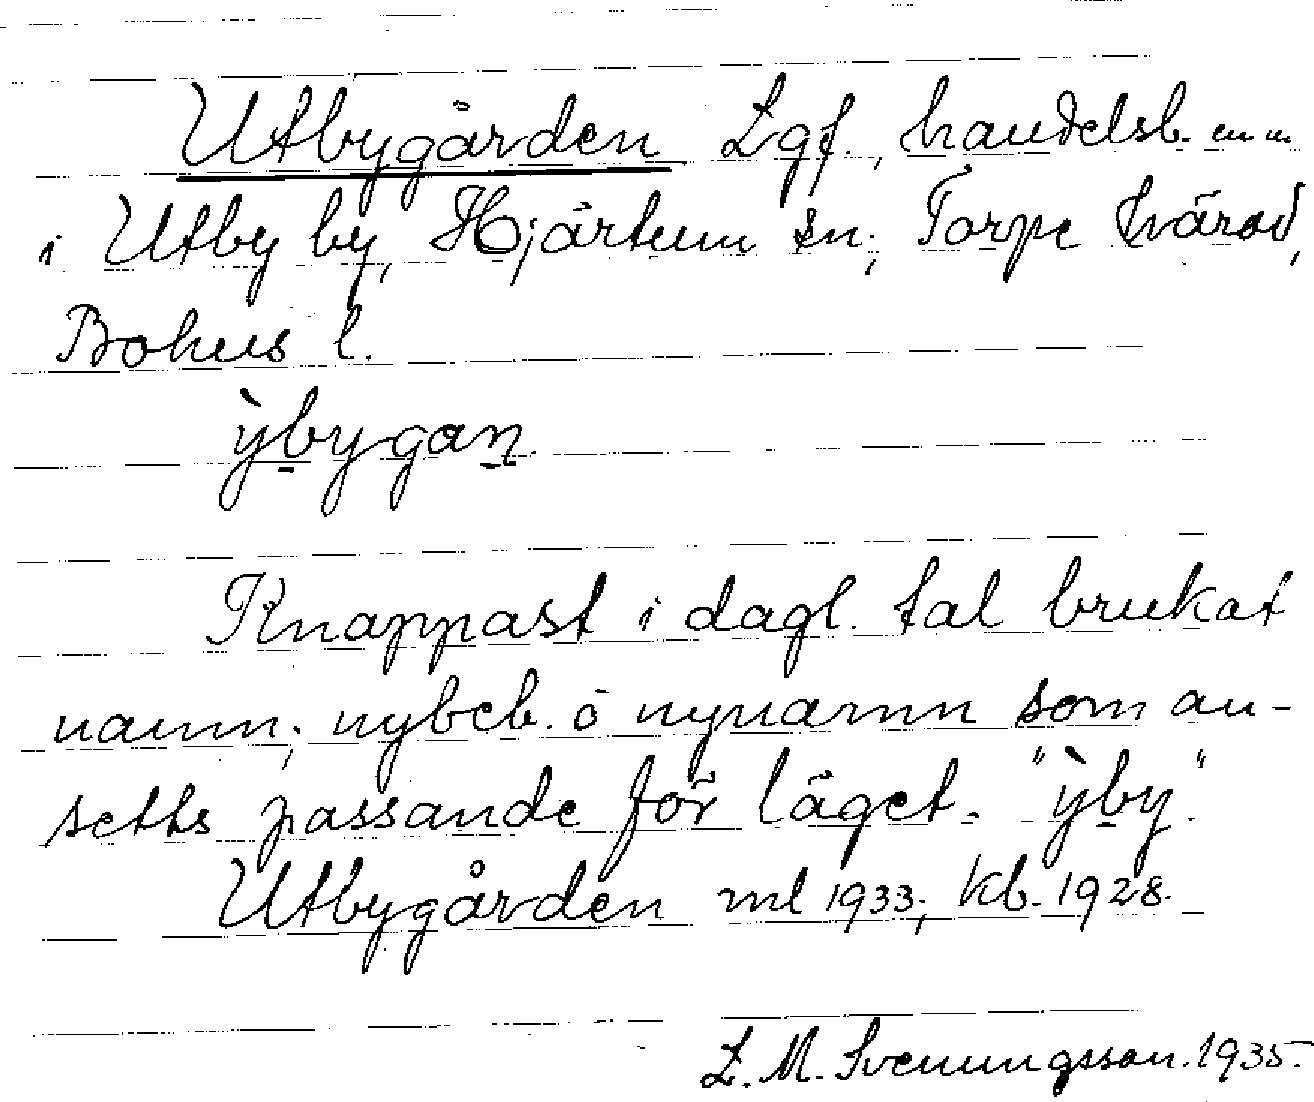 Utbygården Lgf., handelsb. m m
i Utby by, Hjärtum sn; Torpe härad,
Bohus l.
ỳbygan.
Knappast i dagl. tal brukat
namn; nybeb. o nynamn som an-
setts passande för läget. "ỳby".
Utbygården ml 1933; kb. 1928.
L. M. Svenungsson. 1935.